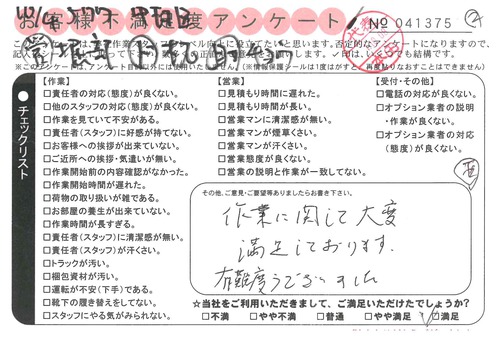 お客様不満足度アンケート
№ 041375
チェックリスト
【作業】
□責任者の対応(態度)が良くない。
□他のスタッフの対応(態度)が良くない。
□作業を見ていて不安がある。
□責任者(スタッフ)に好感が持てない。
□お客様への挨拶が出来ていない。
□ご近所への挨拶・気遣いが無い。
□作業開始前の内容確認がなかった。
□作業開始時間が遅れた。
□荷物の取り扱いが雑である。
□お部屋の養生が出来ていない。
□作業時間が長すぎる。
□責任者(スタッフ)に清潔感が無い。
□責任者(スタッフ)が汗くさい。
□トラックが汚い。
□梱包資材が汚い。
□運転が不安(下手)である。
□靴下の履き替えをしてない。
□スタッフにやる気がみられない。
【営業】
□見積もり時間に遅れた。
□見積もり時間が長い。
□営業マンに清潔感が無い。
□営業マンが煙草くさい。
□営業マンが汗くさい。
□営業態度が良くない。
□営業の説明と作業が一致してない。
【受付・その他】
□電話の対応が良くない。
□オプション業者の説明
・作業が良くない。
□オプション業者の対応
(態度)が良くない。
その他、ご意見・ご要望等ありましたらお書き下さい。
作業に関して大変
満足しております。
有難度うございました
☆当社をご利用いただきまして、ご満足いただけたでしょうか?
□不満 □やや不満 □普通 □やや満足 □満足